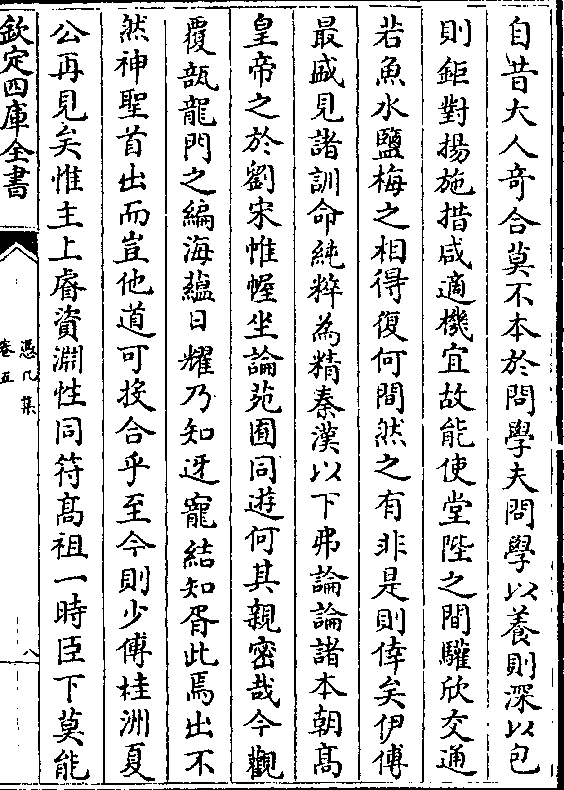 自昔大人奇合莫不本於問學夫問學以養則深以包
則鉅對揚施措咸適機宜故能使堂陛之間驩欣交通
若魚水鹽梅之相得復何間然之有非是則倖矣伊傅
最盛見諸訓命純粹為精秦漢以下弗論論諸本朝髙
皇帝之於劉宋惟幄坐論苑囿同遊何其親密哉今觀
覆瓿龍門之編海蘊日耀乃知迓寵結知胥此焉出不
然神聖首出而豈他道可投合乎至今則少傅桂洲夏
公再見矣惟主上睿資淵性同符髙祖一時臣下莫能
欽定四庫全書
憑几集
卷五
八